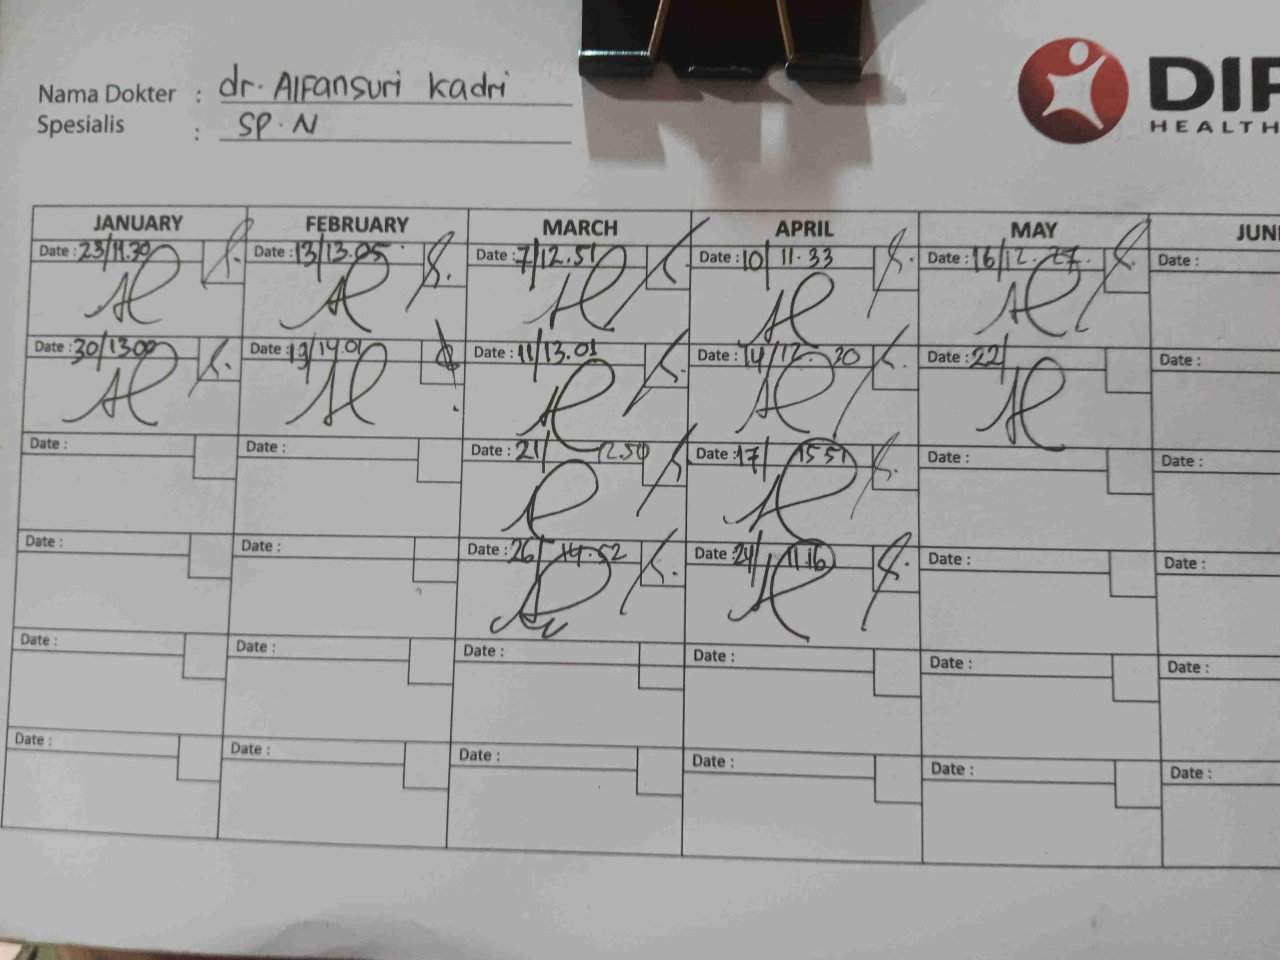 Nama Dokter : dr. Alfansuri Kadri
Spesialis : SP. N
DIF
HEALTH
JANUARY FEBRUARY MARCH APRIL MAY JUN
Date : 23/11.30 Date : 13/13.05 Date : 7/12.51 Date : 10/ 11.33 Date : 16/12.27. Date :
Date : 30/13.00 Date : 19/14.01 Date : 11/13.01 Date : 14/12 30 Date : 22/ Date :
Date : Date : Date : 21/ 12.50 Date : 17/ 15.51 Date : Date :
Date : Date : Date : 26/ 14.52 Date : 24/ 11.16 Date : Date :
Date : Date : Date : Date : Date : Date :
Date : Date : Date : Date : Date : Date :